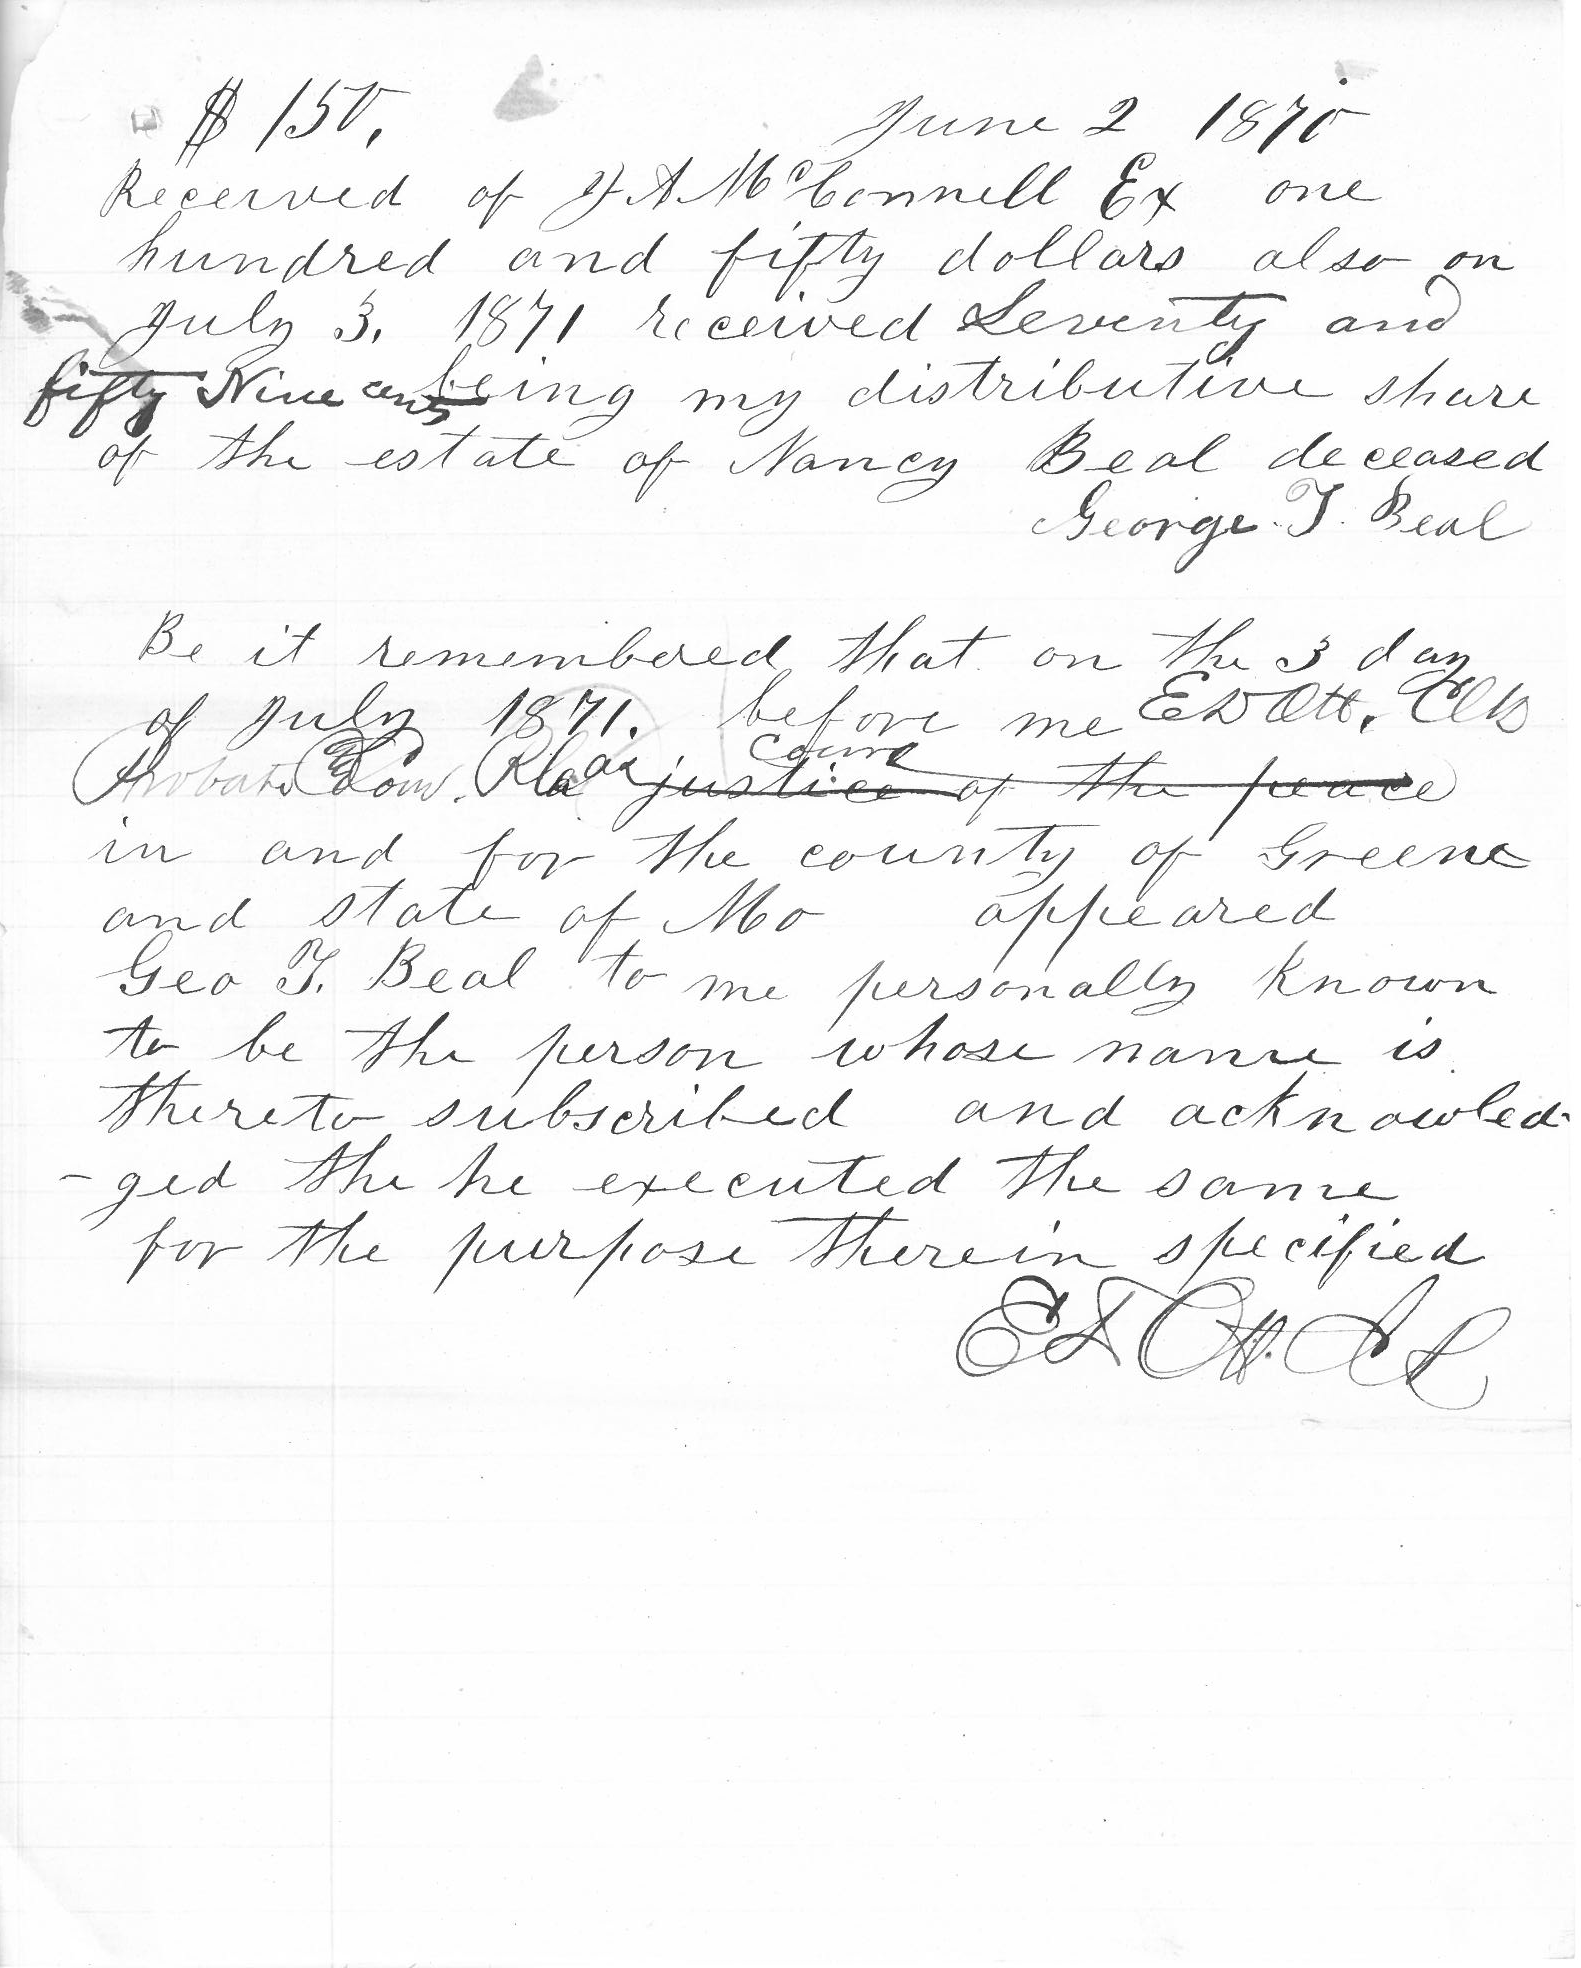 $ 150. June 2 1870
Received of J A McConnell Ex one
hundred and fifty dollars also on
July 3. 1871 received Seventy and
fifty Nine cents being my distributive share
of the estate of Nancy Beal deceased
George. T. Beal
Be it remembered that on the 3 day
of July 1871. before me E D Ott. Clk
Probate Court justice of the peace
in and for the county of Greene
and state of Mo appeared
Geo T. Beal to me personally known
to be the person whose name is
thereto subscribed and acknowled-
-ged the he executed the same
for the purpose therein specified
E D Ott.